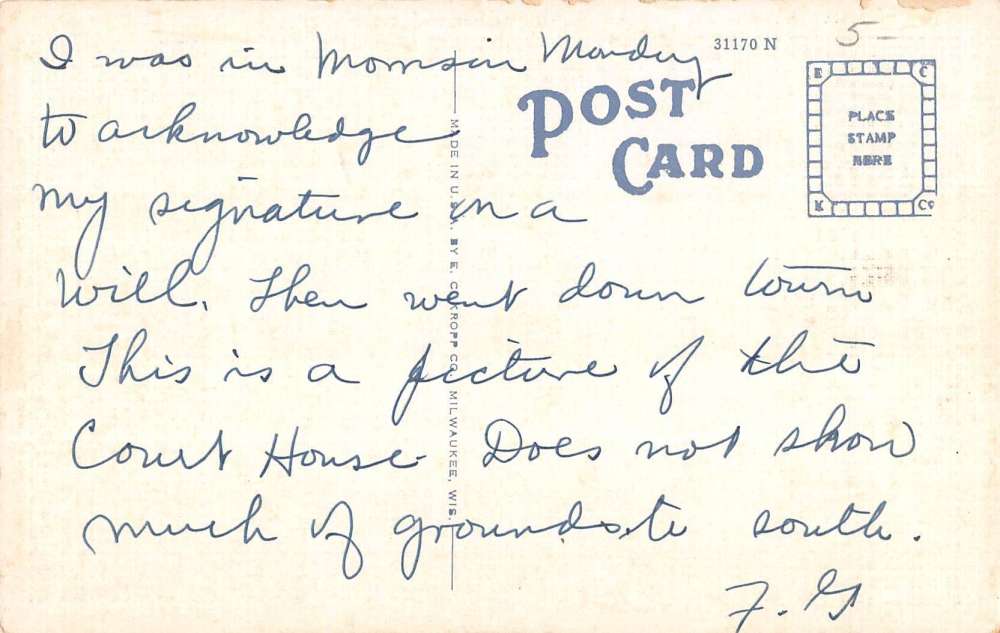 I was in Morrison Monday
to acknowledge
my signature on a
will. Then went down town
This is a picture of the
Court House. Does not show
much of grounds to south.
F. G
31170 N
5-
POST
CARD
PLACE
STAMP
HERE
E C
K Co
MADE IN U.S.A. BY E. C. KROPP CO., MILWAUKEE, WIS.